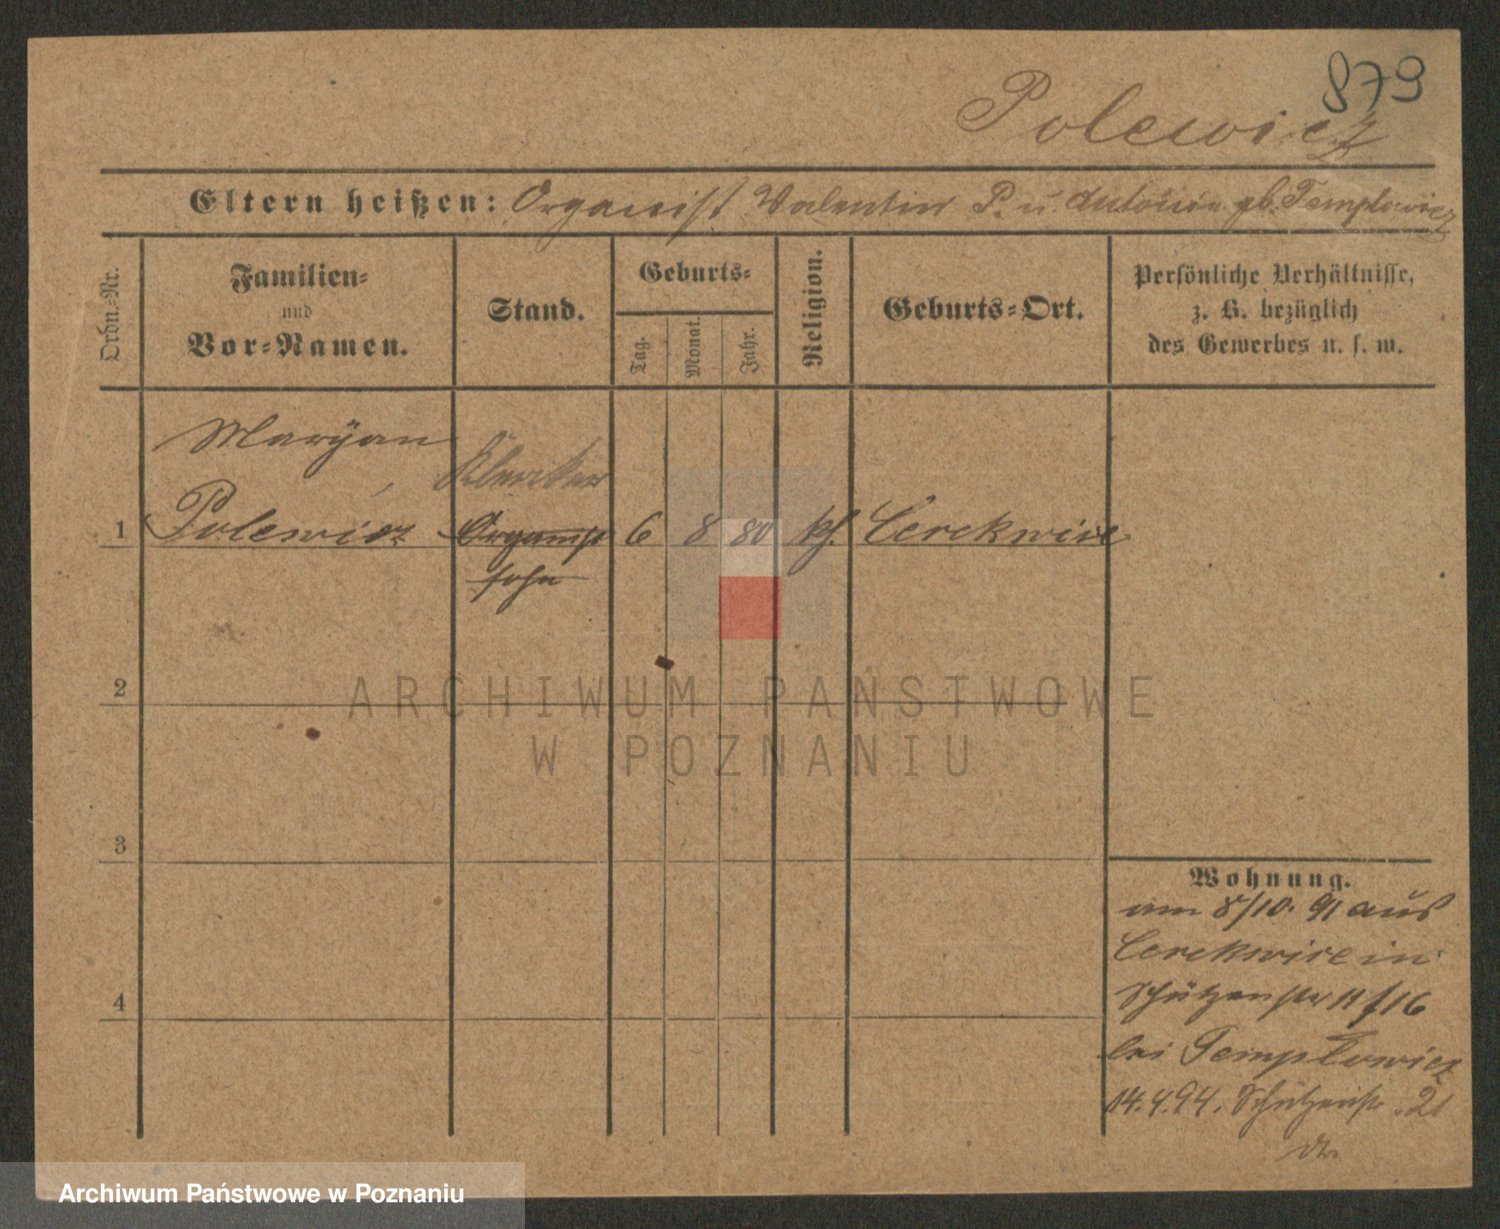 879
Polewicz
Eltern heißen: Organist Valentin P. u. Antonie gb. Templowicz
Ordn.-Nr.
Familien-
und
Vor-Namen.
Stand.
Geburts-
Tag.
Monat.
Jahr.
Religion.
Geburts-Ort.
Persönliche Verhältnisse,
z. B. bezüglich
des Gewerbes u. s. w.
Maryan
Kleriker
1 Polewicz Organist 6 8 80 kf. Cerekwice
sohn
2
ARCHIWUM PAŃSTWOWE
W POZNANIU
3
Wohnung.
am 8/10. 91 aus
Cerekwice in
4
Schützenstr 11/16
bei Templowicz
14.4.94. Schützenstr. 21
Archiwum Państwowe w Poznaniu